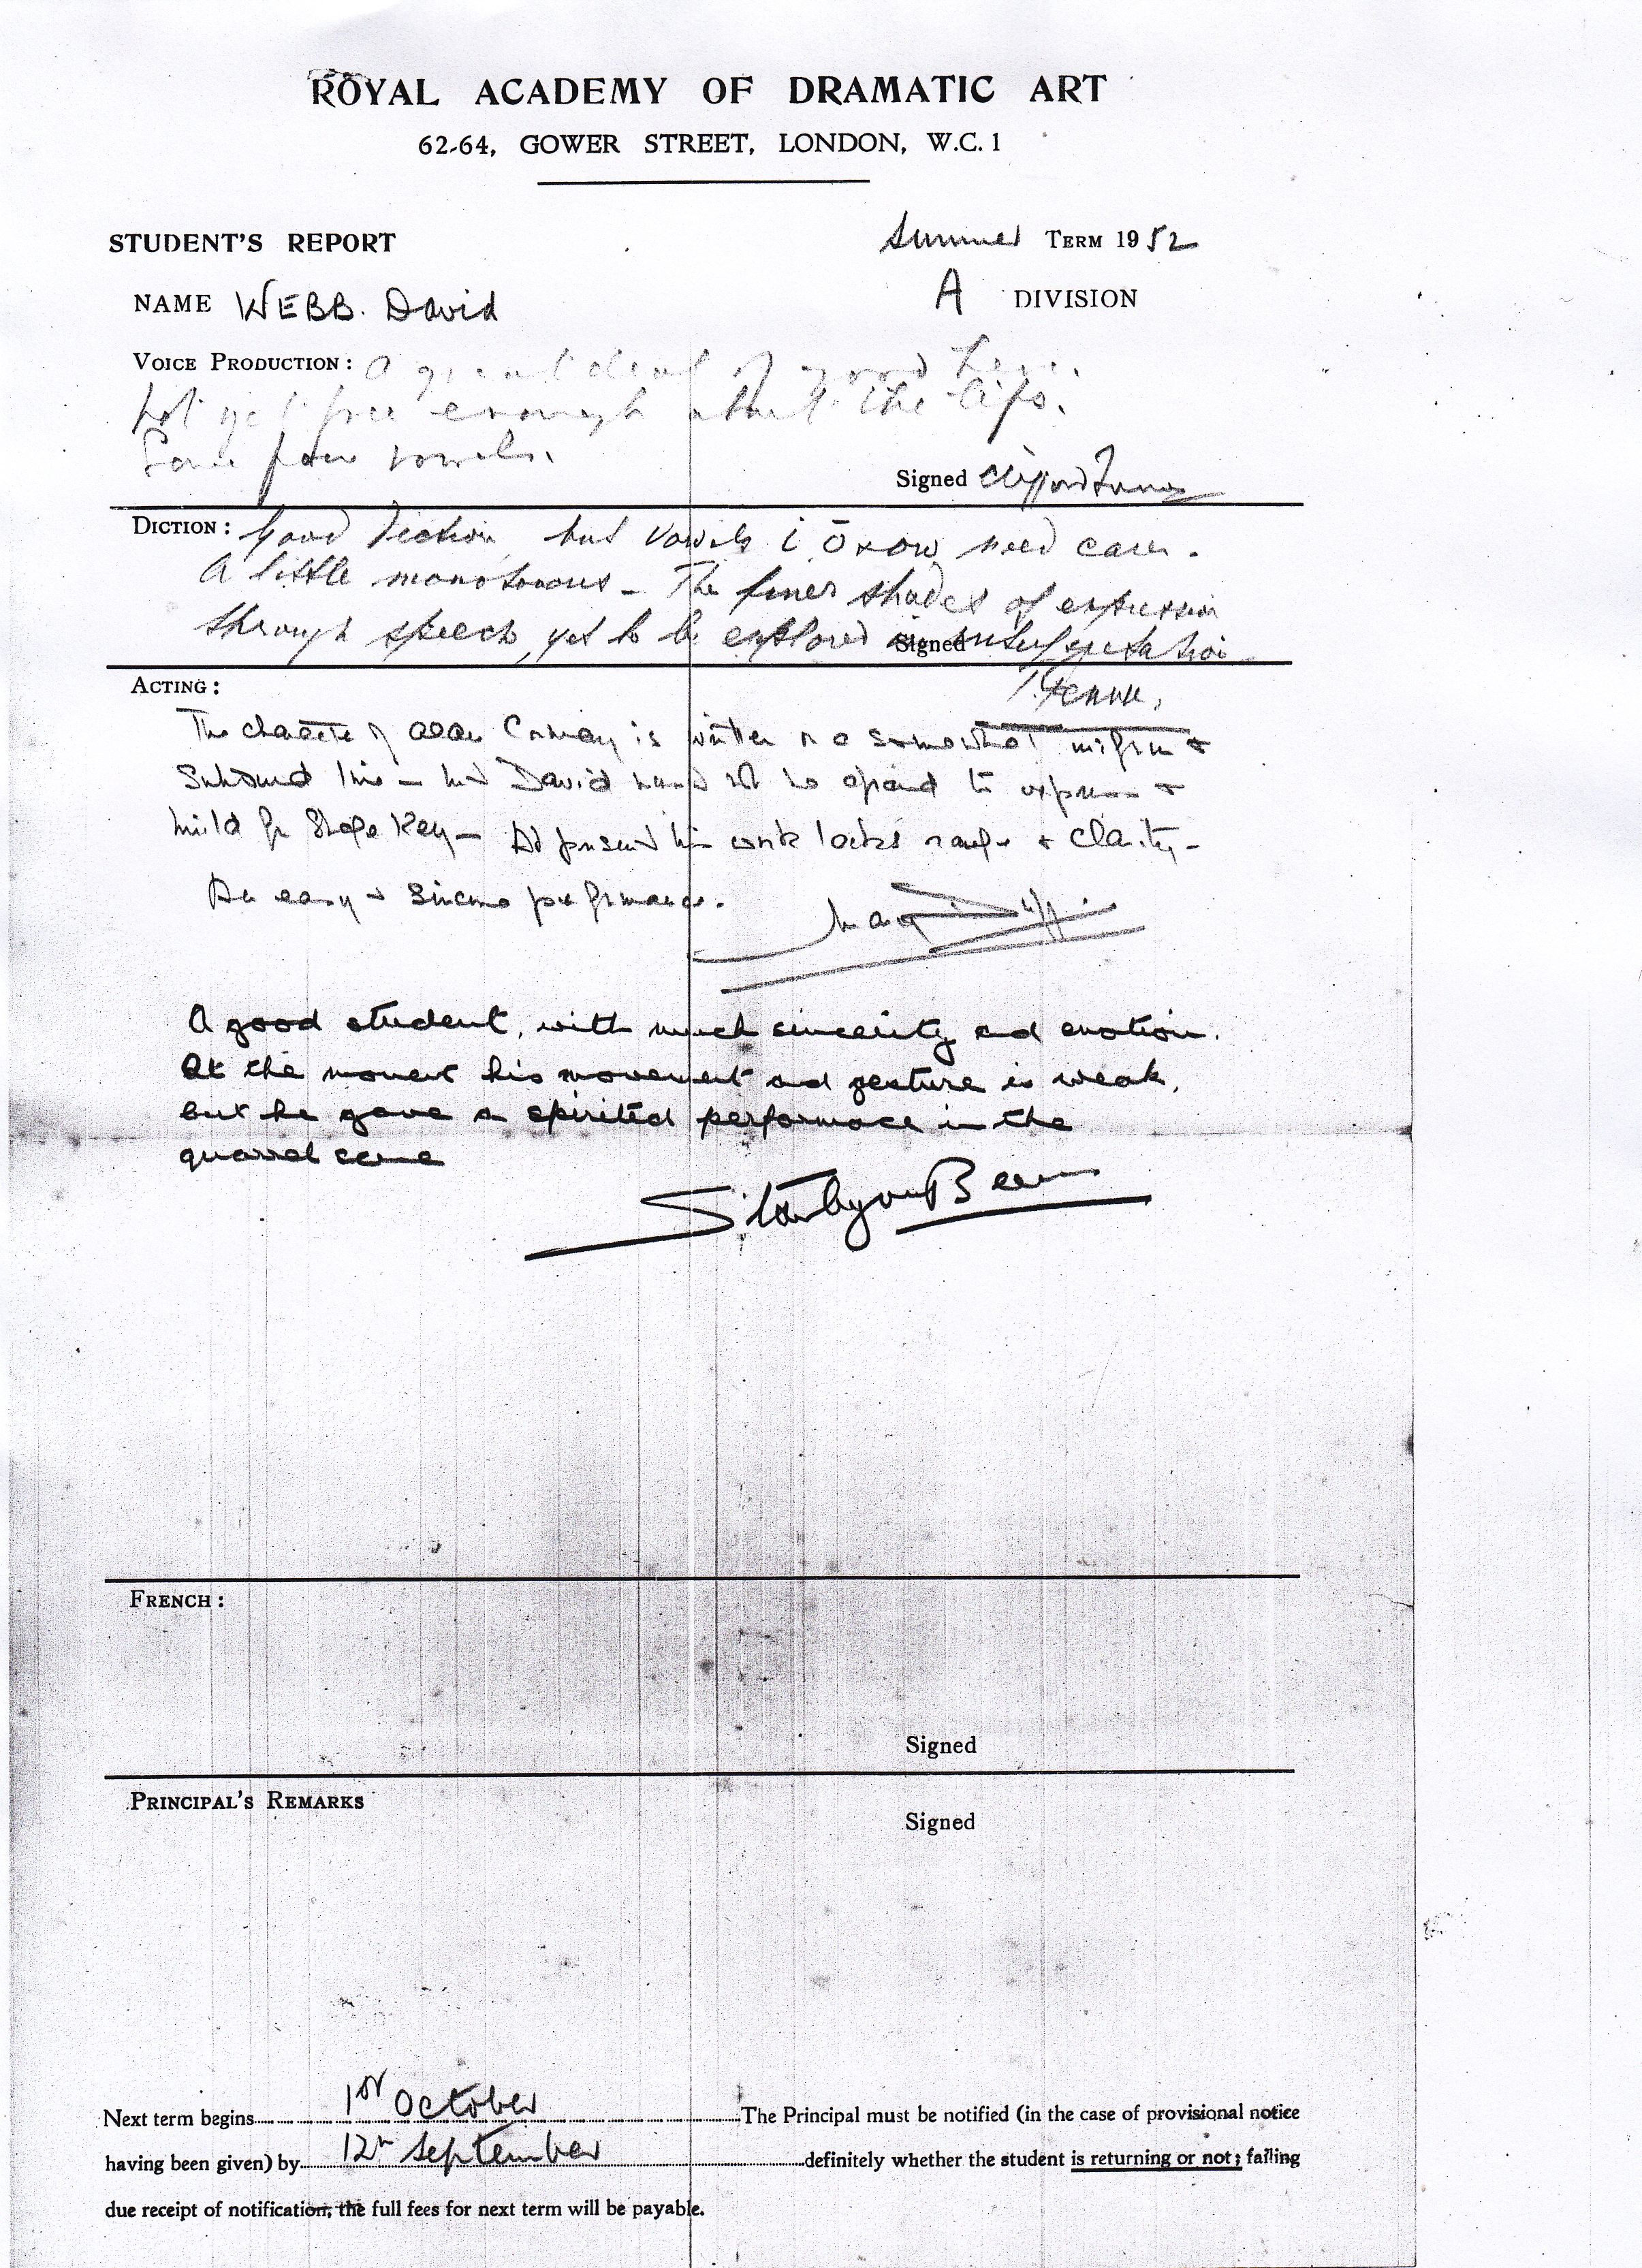 ROYAL ACADEMY OF DRAMATIC ART
62-64, GOWER STREET, LONDON, W.C.1
STUDENT'S REPORT
Summer TERM 1952
NAME WEBB. David
A DIVISION
VOICE PRODUCTION: A great deal of good here.
Not yet free enough about the lips.
Some poor vowels.
Signed Clifford Turner
DICTION: Good diction, but vowels i ō & ow need care.
A little monotonous - The finer shades of expression
through speech, yet to be explored in interpretation
Signed
ACTING:
The character of Alan Conway is written in a somewhat &
subdued line - but David must not be afraid to &
build for Stage Key - At present his work lacks range & clarity -
An easy & sincere performance.
A good student, with much sincerity and emotion.
At the moment his movement and gesture is weak,
but he gave a spirited performance in the
quarrel scene
FRENCH:
Signed
PRINCIPAL'S REMARKS
Signed
Next term begins 1st October The Principal must be notified (in the case of provisional notice
having been given) by 12th September definitely whether the student is returning or not; failing
due receipt of notification, the full fees for next term will be payable.